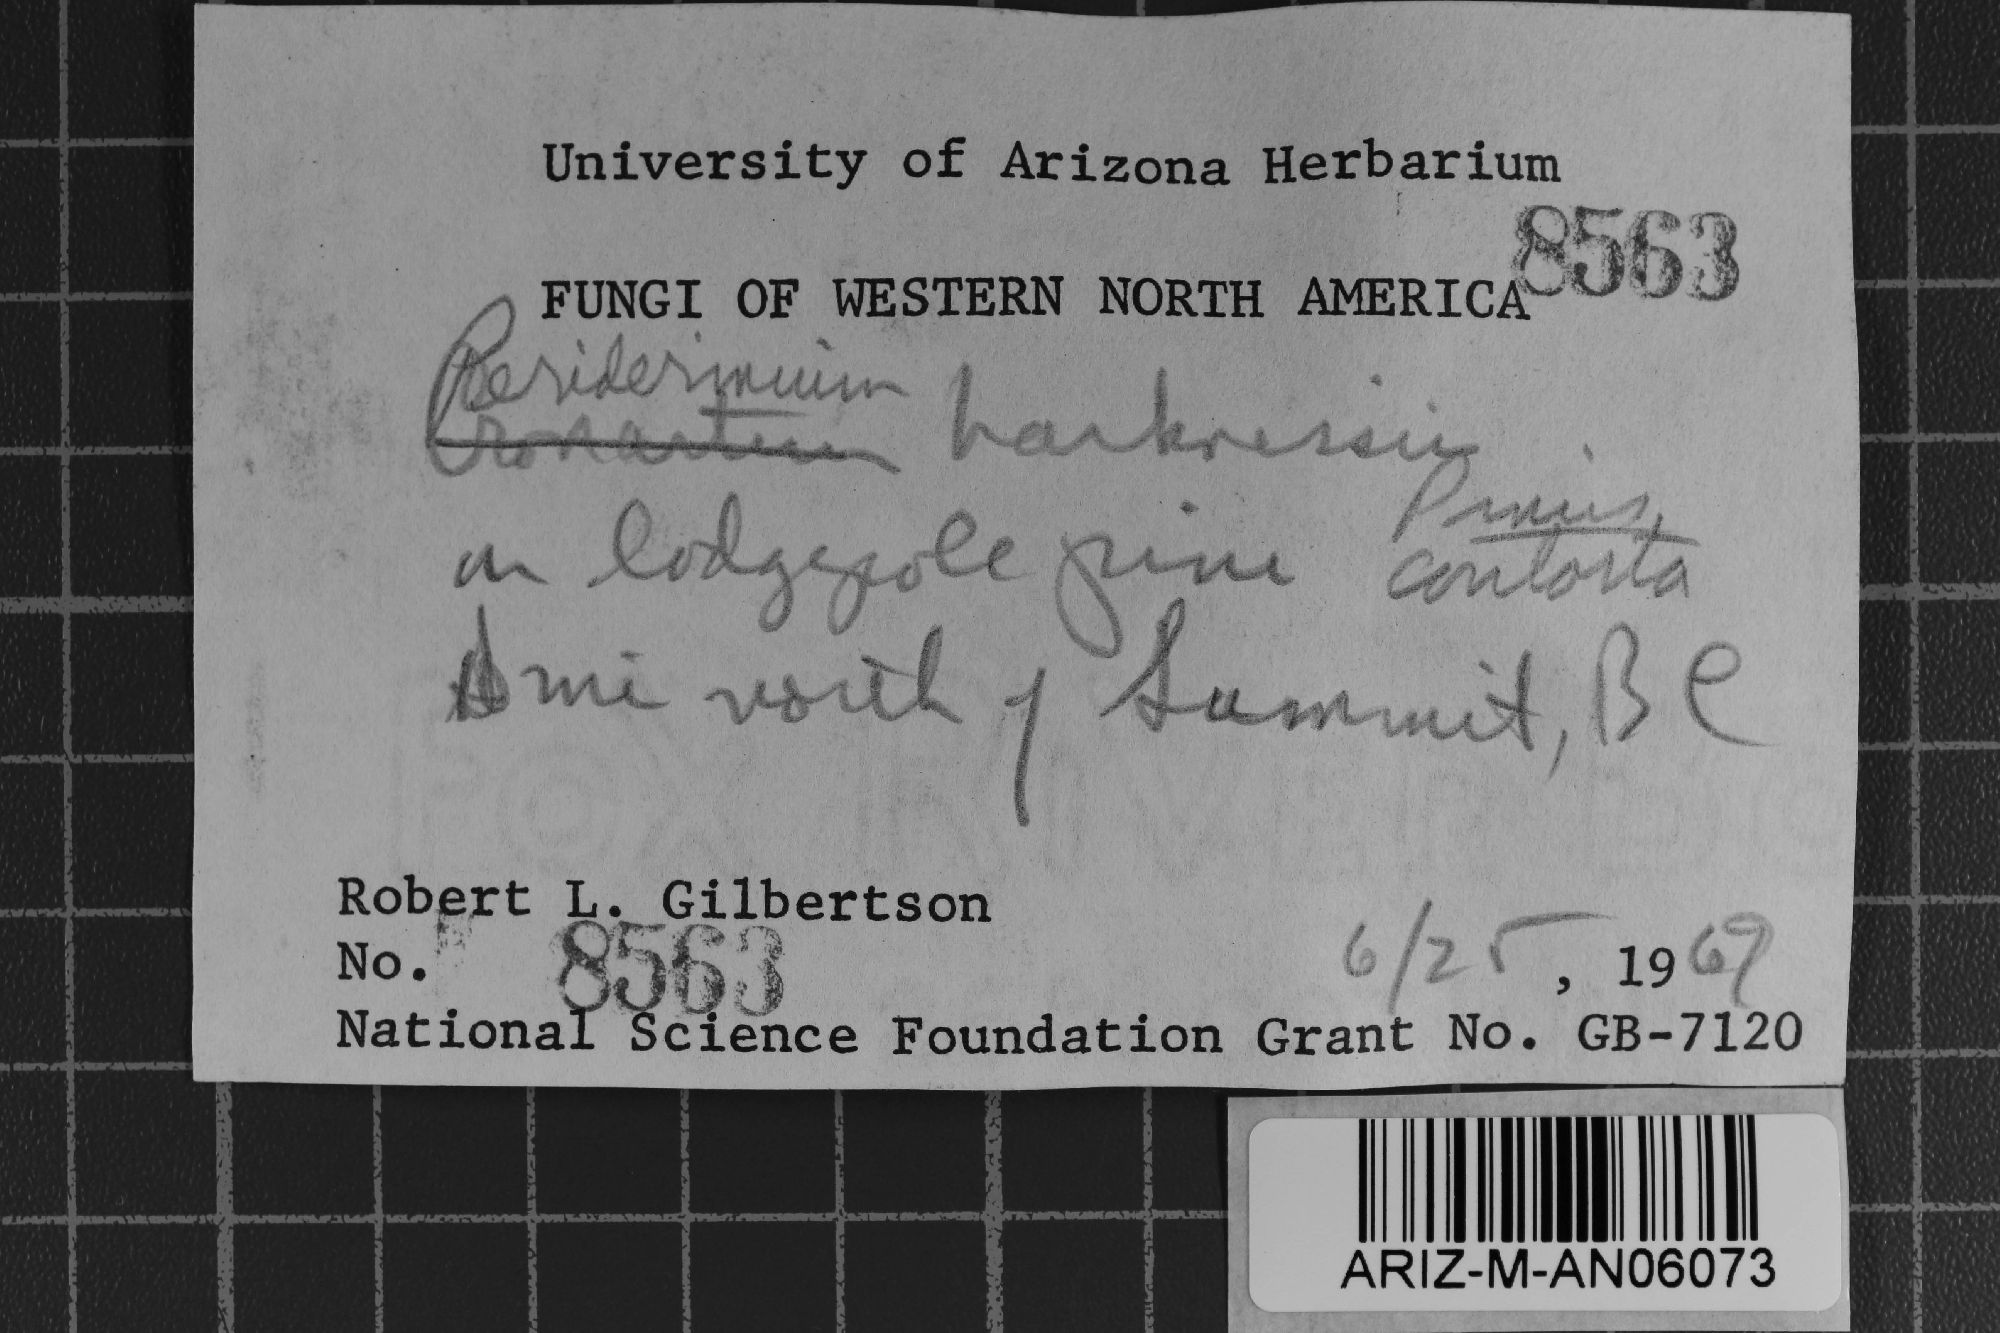 University of Arizona Herbarium
8563
FUNGI OF WESTERN NORTH AMERICA
Peridermium
Cronartium harknessii
on lodgepole pine Pinus
contorta
mi north of Summit, BC
Robert L. Gilbertson
No. 8563
6/25, 1969
National Science Foundation Grant No. GB-7120
ARIZ-M-AN06073